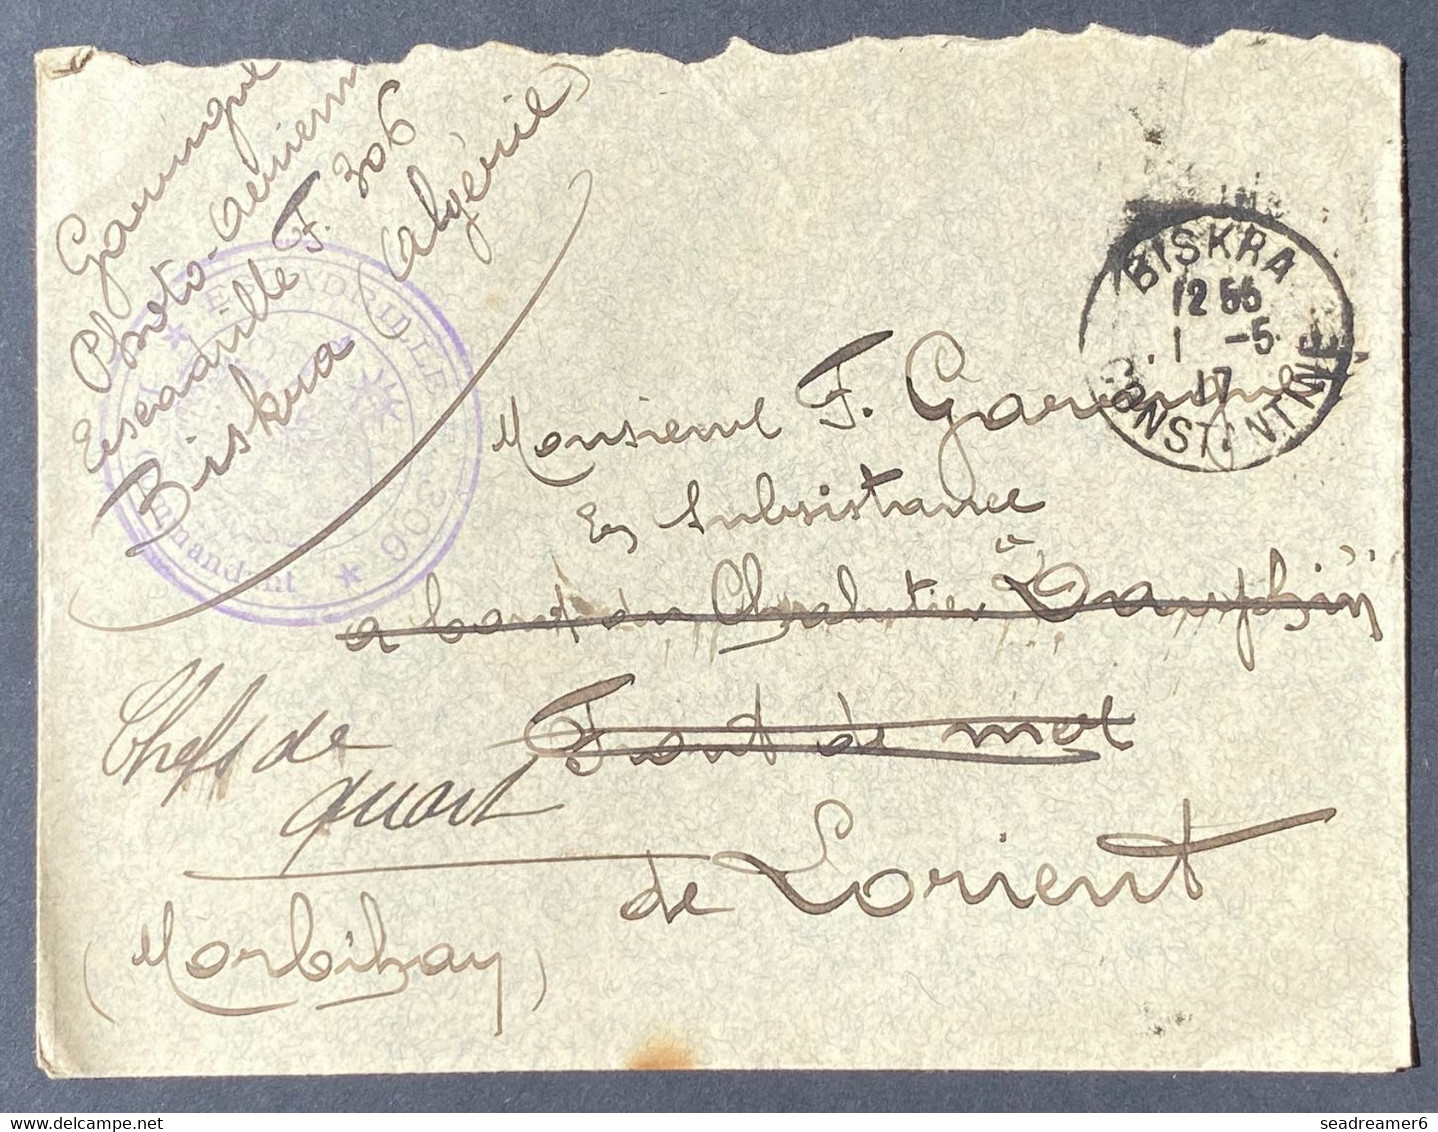 Garrigue
Photo-aérienne
Escadrille F. 306
Biskra (Algérie)
★ ESCADRILLE F 306 ★
Commandant
BISKRA
12 55
1 -5
17
CONSTANTINE
Monsieur F. Garrigue
En Subsistance
a bord du Chalutier "Dauphin"
Front de mer
Chefs de
quart
de Lorient
(Morbihan)
delcampe.net
seadreamer6